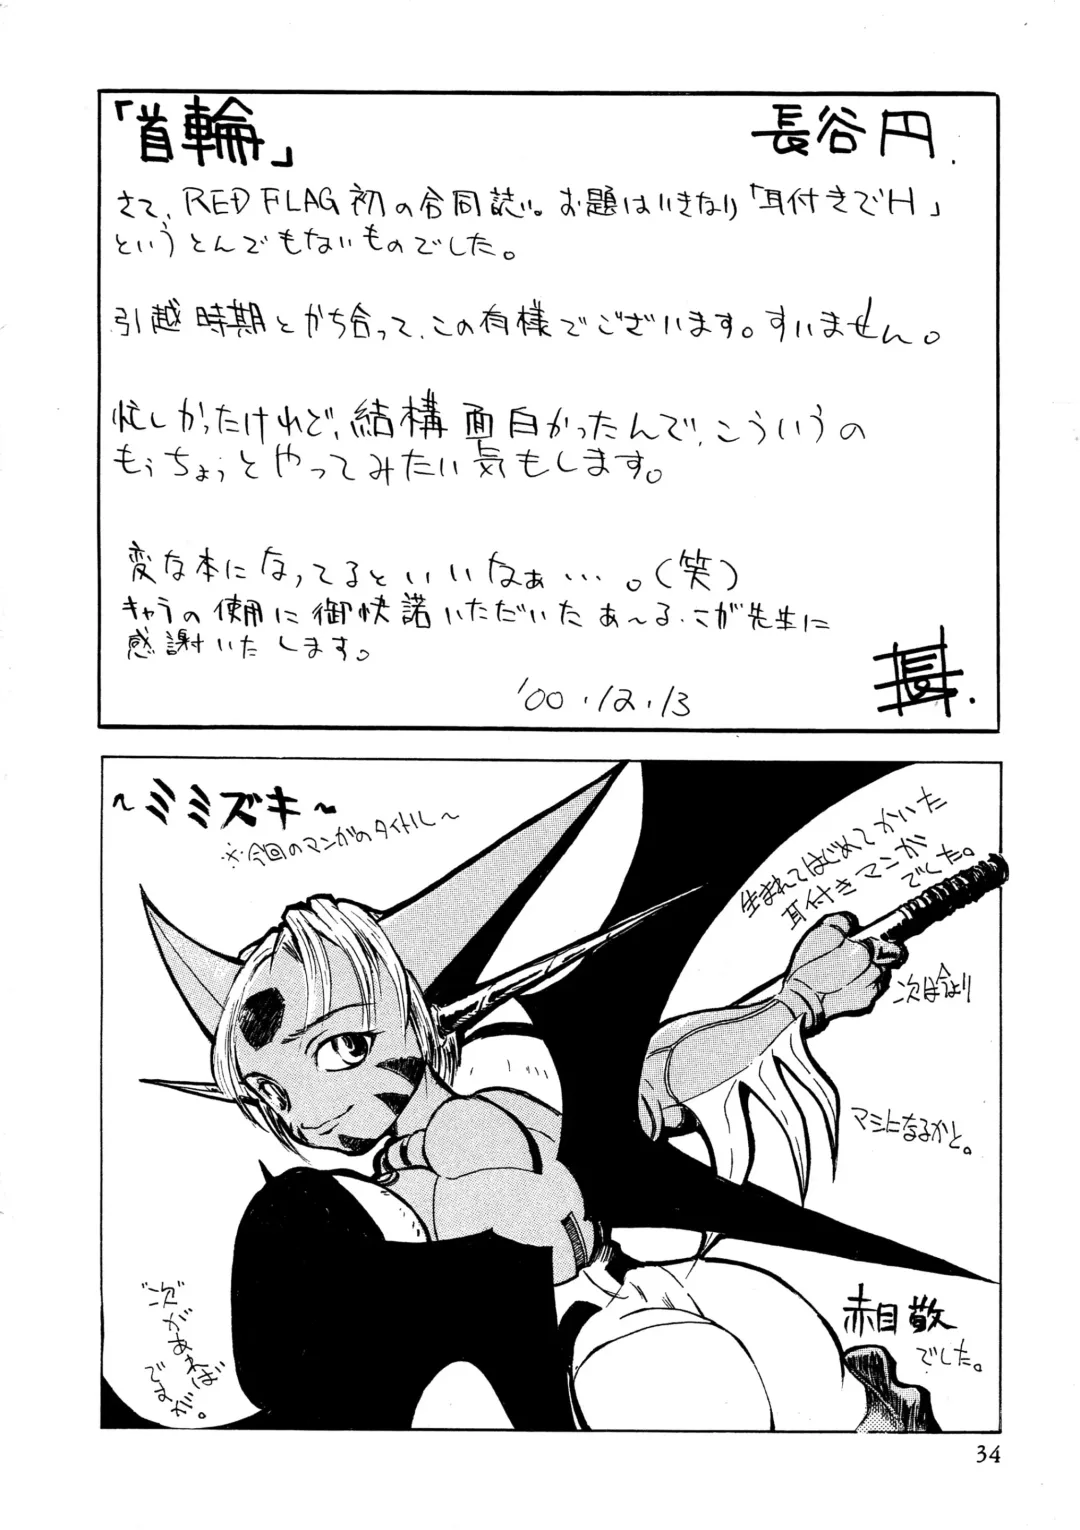 「首輪」 長谷円.
さて、RED FLAG初の合同誌。お題はいきなり「耳付きでH」
というとんでもないものでした。
引越時期とかち合って、この有様でございます。すいません。
忙しかったけれど、結構面白かったんで、こういうの
もうちょっとやってみたい気もします。
変な本になってるといいなぁ…。(笑)
キャラの使用に御快諾いただいたあ〜る・こが先生に
感謝いたします。
'00.12.13
長.
〜ミミズキ〜
※今回のマンガのタイトル〜
生まれてはじめてかいた
耳付きマンガ
でした。
次は今より
マシになるかと。
"次"が
あれば
でまだ。
赤目敬
でした。
34